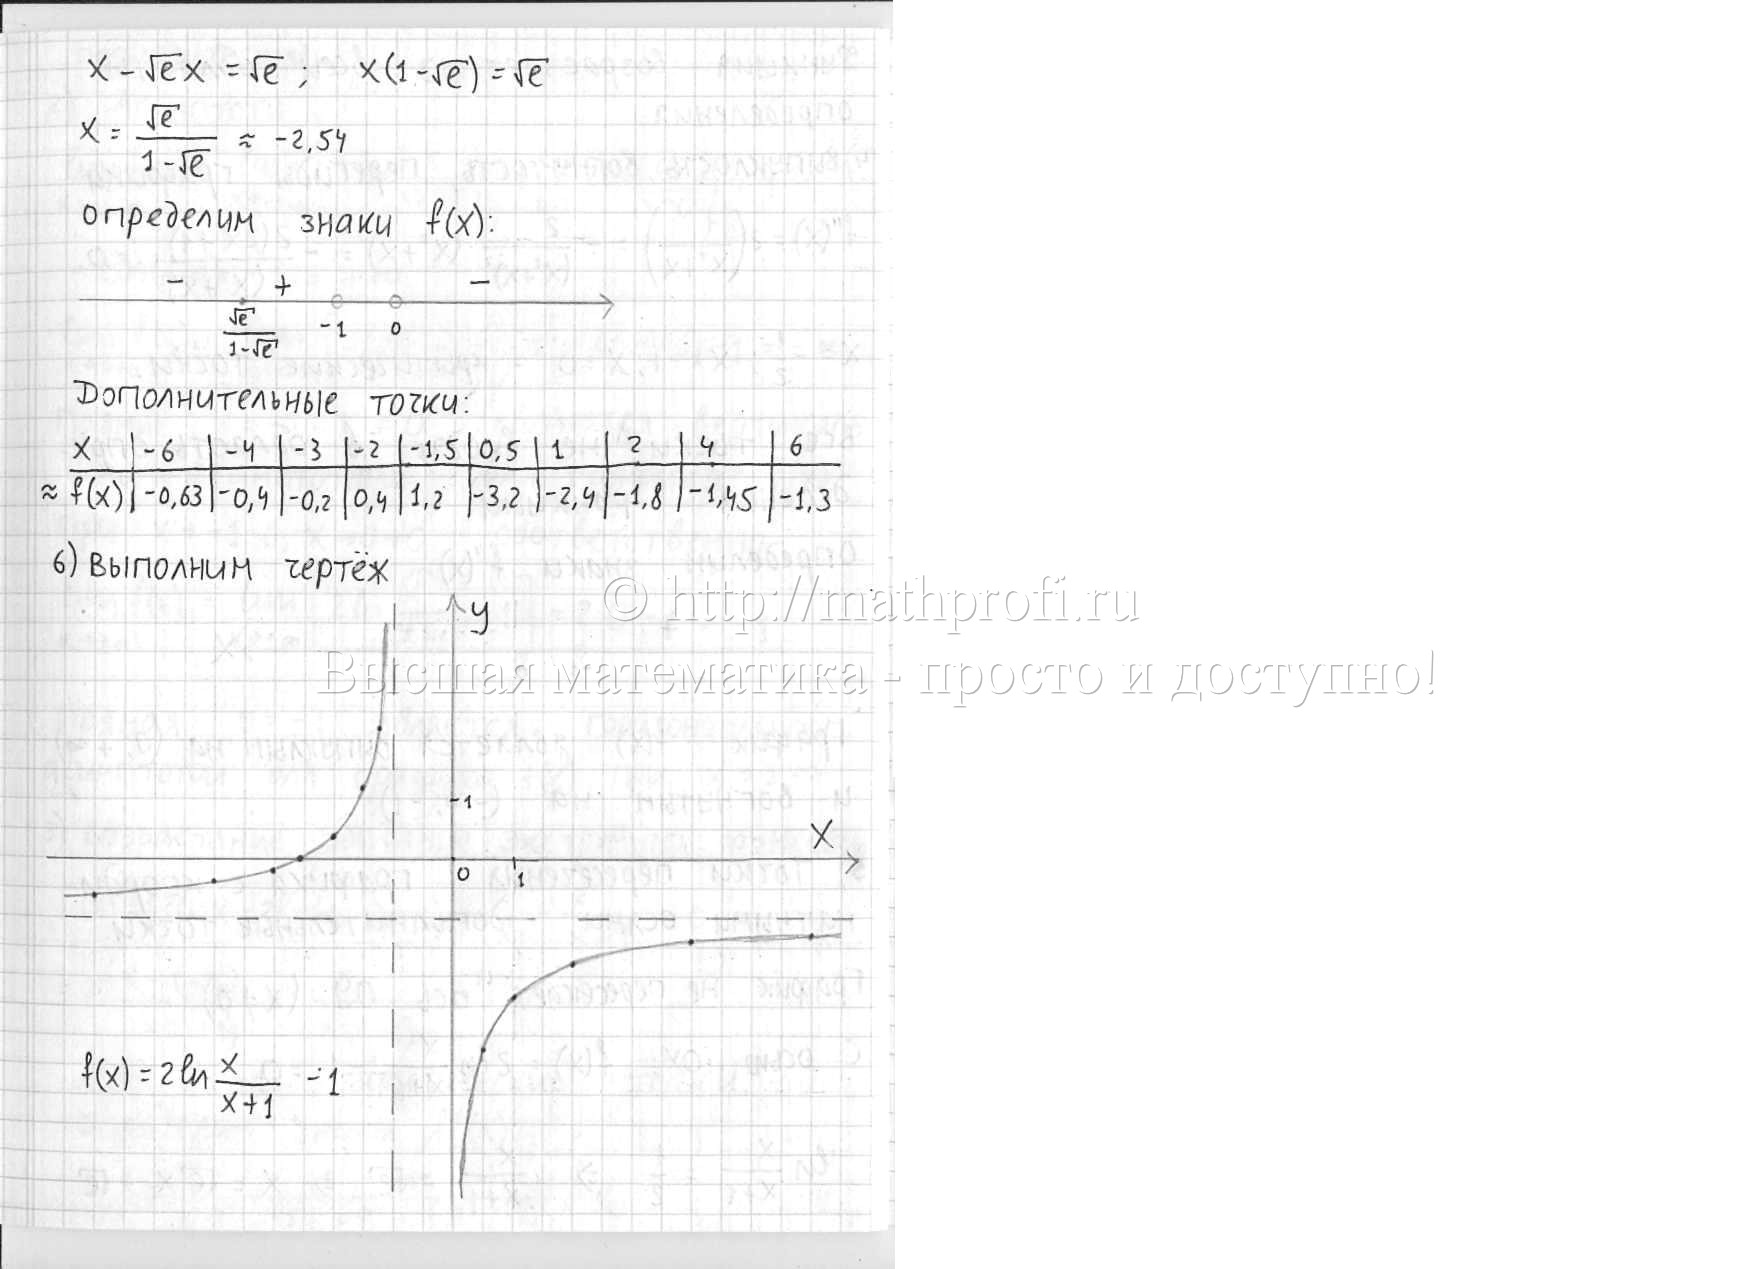 x - √e x = √e ; x(1-√e) = √e
x = √e / (1-√e) ≈ -2,54
Определим знаки f(x):
- + -
√e / (1-√e) -1 0
Дополнительные точки:
x | -6 | -4 | -3 | -2 | -1,5 | 0,5 | 1 | 2 | 4 | 6
≈ f(x) | -0,63 | -0,4 | -0,2 | 0,4 | 1,2 | -3,2 | -2,4 | -1,8 | -1,45 | -1,3
6) Выполним чертёж
© http://mathprofi.ru
y
Высшая математика - просто и доступно!
1
x
0 1
f(x) = 2 ln x / (x+1) - 1